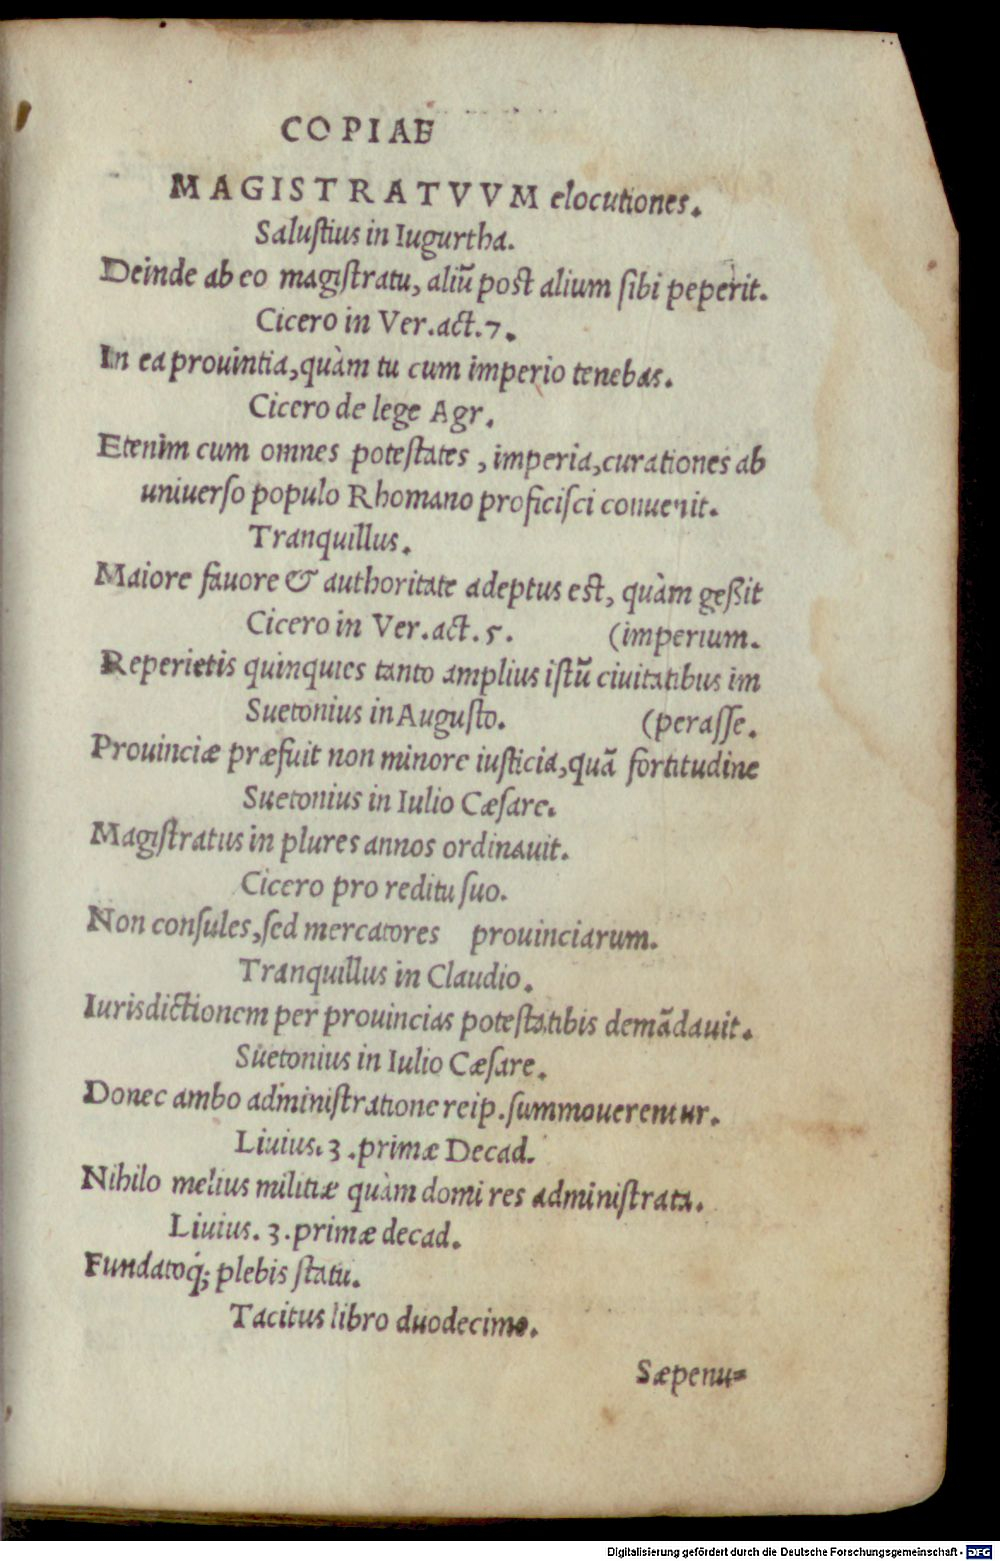 COPIAE
MAGISTRATVVM elocutiones.
Saluſtius in Iugurtha.
Deinde ab eo magiſtratu, aliũ poſt alium ſibi peperit.
Cicero in Ver.act.7.
In ea prouintia,quàm tu cum imperio tenebas.
Cicero de lege Agr.
Etenim cum omnes poteſtates , imperia,curationes ab
uniuerſo populo Rhomano proficiſci conuenit.
Tranquillus.
Maiore fauore & authoritate adeptus eſt, quàm geßit
Cicero in Ver.act.5. (imperium.
Reperietis quinquies tanto amplius iſtũ ciuitatibus im
Suetonius in Auguſto. (peraſſe.
Prouinciæ præfuit non minore iuſticia,quã fortitudine
Suetonius in Iulio Cæſare.
Magiſtratus in plures annos ordinauit.
Cicero pro reditu ſuo.
Non conſules,ſed mercatores prouinciarum.
Tranquillus in Claudio.
Iurisdictionem per prouincias poteſtatibis demãdauit.
Suetonius in Iulio Cæſare.
Donec ambo adminiſtratione reip.ſummouerentur.
Liuius.3.primæ Decad.
Nihilo melius militiæ quàm domi res adminiſtrata.
Liuius.3.primæ decad.
Fundatoq́; plebis ſtatu.
Tacitus libro duodecimo.
Sæpenu=
Digitalisierung gefördert durch die Deutsche Forschungsgemeinschaft - DFG